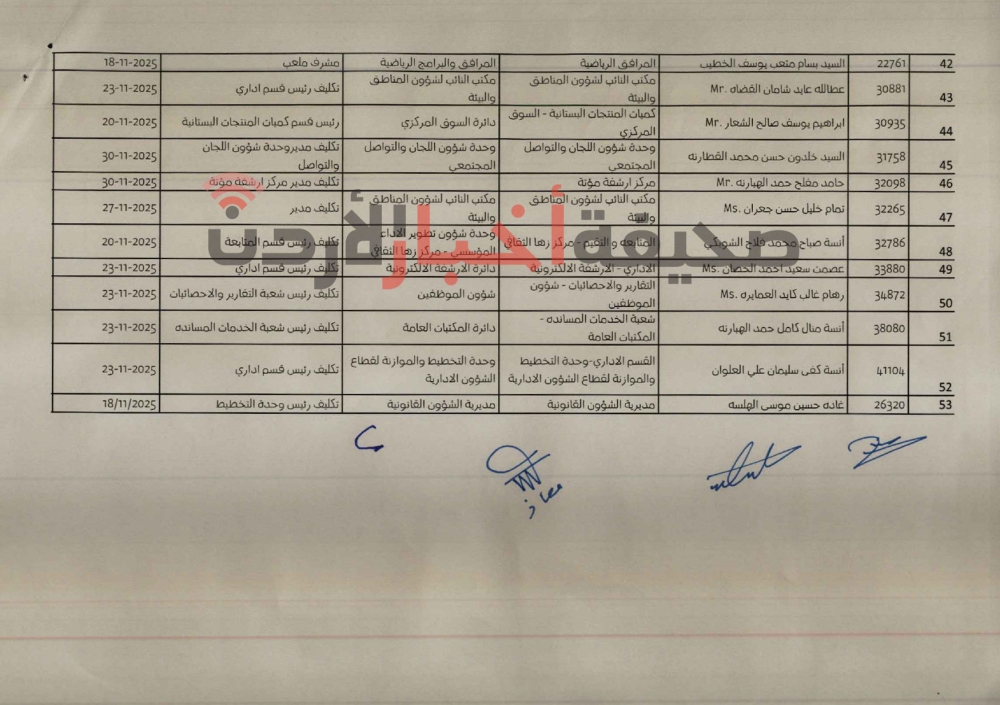 42 22761 السيد بسام متعب يوسف الخطيب المرافق الرياضية المرافق والبرامج الرياضية مشرف ملعب 18-11-2025
43 30881 عطالله عايد شامان القضاه Mr. مكتب النائب لشؤون المناطق والبيئة مكتب النائب لشؤون المناطق والبيئة تكليف رئيس قسم اداري 23-11-2025
44 30935 ابراهيم يوسف صالح الشعار Mr. كميات المنتجات البستانية - السوق المركزي دائرة السوق المركزي رئيس قسم كميات المنتجات البستانية 20-11-2025
45 31758 السيد خلدون حسن محمد القطارنه وحدة شؤون اللجان والتواصل المجتمعي وحدة شؤون اللجان والتواصل المجتمعي تكليف مديروحدة شؤون اللجان والتواصل 30-11-2025
46 32098 حامد مفلح حمد الهبارنه Mr. مركز ارشفة مؤتة تكليف مدير مركز ارشفة مؤتة 30-11-2025
47 32265 تمام خليل حسن جعران Ms. مكتب النائب لشؤون المناطق والبيئة مكتب النائب لشؤون المناطق والبيئة تكليف مدير 27-11-2025
48 32786 أنسة صباح محمد فلاح الشوبكي المتابعه و التقيم - مركز زها الثقافي وحدة شؤون تطوير الاداء المؤسسي - مركز زها الثقافي تكليف رئيس قسم المتابعة 20-11-2025
49 33880 عصمت سعيد احمد الحصان Ms. الاداري - الارشفة الالكترونية دائرة الارشفة الالكترونية تكليف رئيس قسم اداري 23-11-2025
50 34872 رهام غالب كايد العمايره Ms. التقارير والاحصائيات - شؤون الموظفين شؤون الموظفين تكليف رئيس شعبة التقارير والاحصائيات 23-11-2025
51 38080 أنسة منال كامل حمد الهبارنه شعبة الخدمات المسانده - المكتبات العامة دائرة المكتبات العامة تكليف رئيس شعبة الخدمات المسانده 23-11-2025
52 41104 أنسة كفى سليمان علي العلوان القسم الاداري-وحدة التخطيط والموازنة لقطاع الشؤون الادارية وحدة التخطيط والموازنة لقطاع الشؤون الادارية تكليف رئيس قسم اداري 23-11-2025
53 26320 غاده حسين موسى الهلسه مديرية الشؤون القانونية مديرية الشؤون القانونية تكليف رئيس وحدة التخطيط 18/11/2025
صحيفة أخبار الأردن